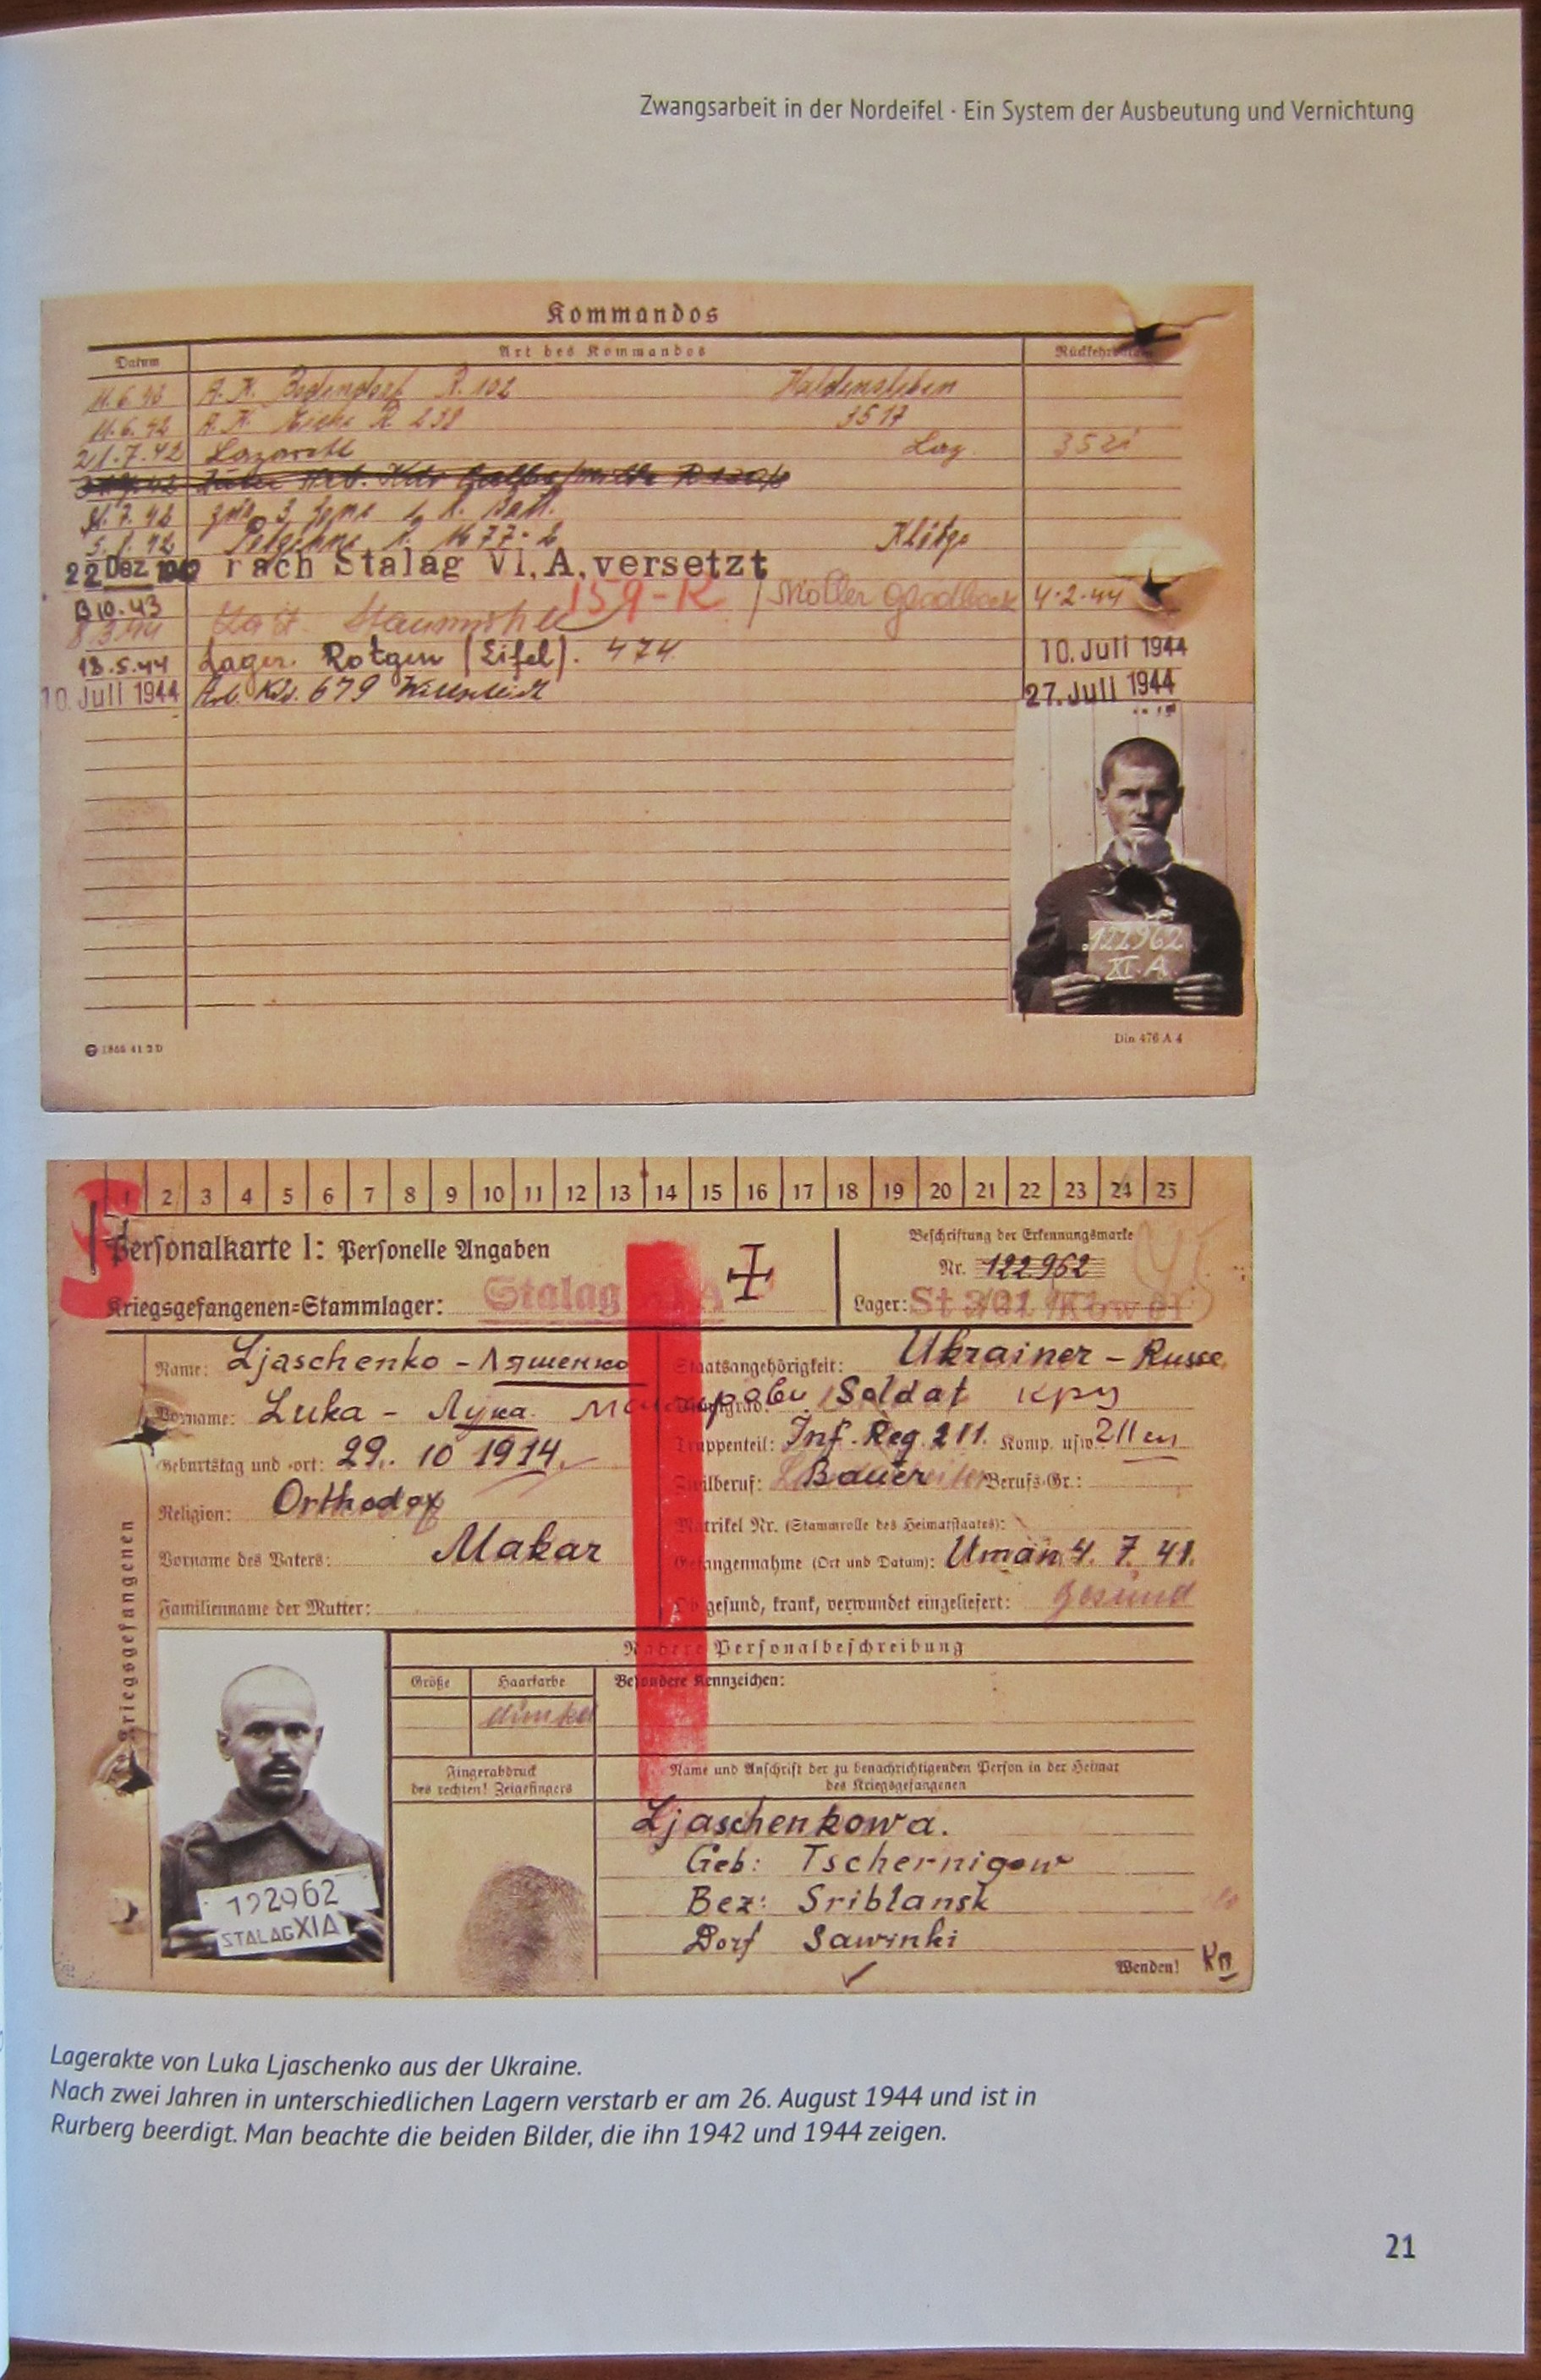 Zwangsarbeit in der Nordeifel · Ein System der Ausbeutung und Vernichtung
Kommandos
Datum Art des Kommandos
A.K. Bodendorf R.102 Haldensleben
11.6.42 A.K. R 238 3517
21.7.42 Lazarett Lag.
Klötze
22 Dez nach Stalag VI, A, versetzt
13.10.43 159-R 4.2.44
18.5.44 Lager. Rötgen (Eifel). 474 10. Juli 1944
10. Juli 1944 Arb. Kdo. 679 27. Juli 1944
122962
XI A
Din 476 A 4
1 2 3 4 5 6 7 8 9 10 11 12 13 14 15 16 17 18 19 20 21 22 23 24 25
Personalkarte I: Personelle Angaben
Beschriftung der Erkennungsmarke
Nr. 122962
Kriegsgefangenen=Stammlager: Stalag XI A
Lager:
Name: Ljaschenko - Ляшенко
Staatsangehörigkeit: Ukrainer - Russe
Vorname: Luka - Лука
Dienstgrad: Soldat кру
Truppenteil: Inf. Reg. 211. Komp. usw. 211
Geburtstag und -ort: 29. 10 1914.
Zivilberuf: Bauer Berufs-Gr.:
Religion: Orthodox
Matrikel Nr. (Stammrolle des Heimatstaates):
Vorname des Vaters: Makar
Gefangennahme (Ort und Datum): Uman 4. 7. 41.
Familienname der Mutter:
Ob gesund, krank, verwundet eingeliefert: gesund
des Kriegsgefangenen
Nähere Personalbeschreibung
Größe Haarfarbe Besondere Kennzeichen:
dunkel
Fingerabdruck
des rechten! Zeigefingers
Name und Anschrift der zu benachrichtigenden Person in der Heimat
des Kriegsgefangenen
Ljaschenkowa.
Geb: Tschernigow
Bez: Sriblansk
Dorf Sawinki
Wenden!
122962
STALAG XIA
Lagerakte von Luka Ljaschenko aus der Ukraine.
Nach zwei Jahren in unterschiedlichen Lagern verstarb er am 26. August 1944 und ist in
Rurberg beerdigt. Man beachte die beiden Bilder, die ihn 1942 und 1944 zeigen.
21